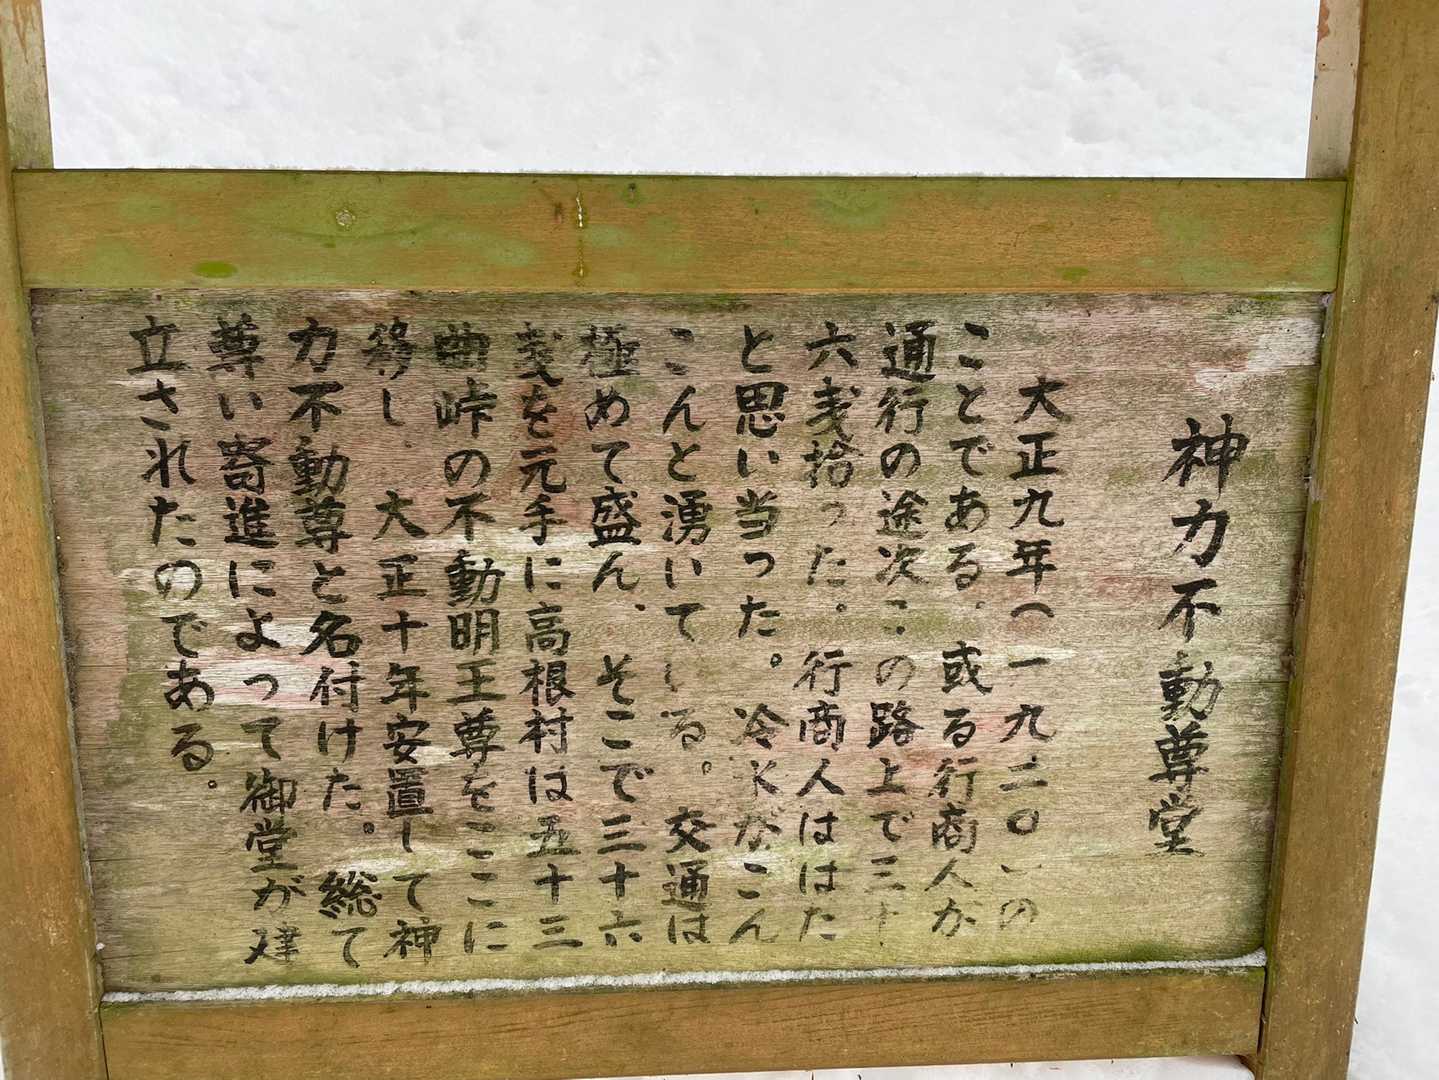 神力不動尊堂
大正九年(一九二〇)の
ことである。或る行商人が
通行の途次この路上で三十
六戔拾った。行商人ははた
と思い当った。冷水がこん
こんと湧いている。交通は
極めて盛ん、そこで三十六
戔を元手に高根村は五十三
曲峠の不動明王尊をここに
移し、大正十年安置して神
力不動尊と名付けた。総て
尊い寄進によって御堂が建
立されたのである。